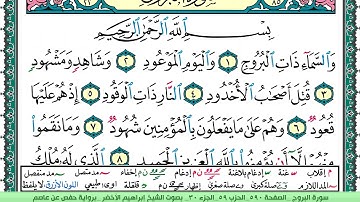 بِسْمِ اللَّهِ الرَّحْمَٰنِ الرَّحِيمِ
وَالسَّمَاءِ ذَاتِ الْبُرُوجِ ١ وَالْيَوْمِ الْمَوْعُودِ ٢ وَشَاهِدٍ وَمَشْهُودٍ
٣ قُتِلَ أَصْحَابُ الْأُخْدُودِ ٤ النَّارِ ذَاتِ الْوَقُودِ ٥ إِذْ هُمْ عَلَيْهَا
قُعُودٌ ٦ وَهُمْ عَلَىٰ مَا يَفْعَلُونَ بِالْمُؤْمِنِينَ شُهُودٌ ٧ وَمَا نَقَمُوا
مِنْهُمْ إِلَّا أَنْ يُؤْمِنُوا بِاللَّهِ الْعَزِيزِ الْحَمِيدِ ٨ الَّذِي لَهُ مُلْكُ
سورة البروج الصفحة ٥٩٠ الحزب ٥٩ الجزء ٣٠ بصوت الشيخ إبراهيم الأخضر رواية حفص عن عاصم